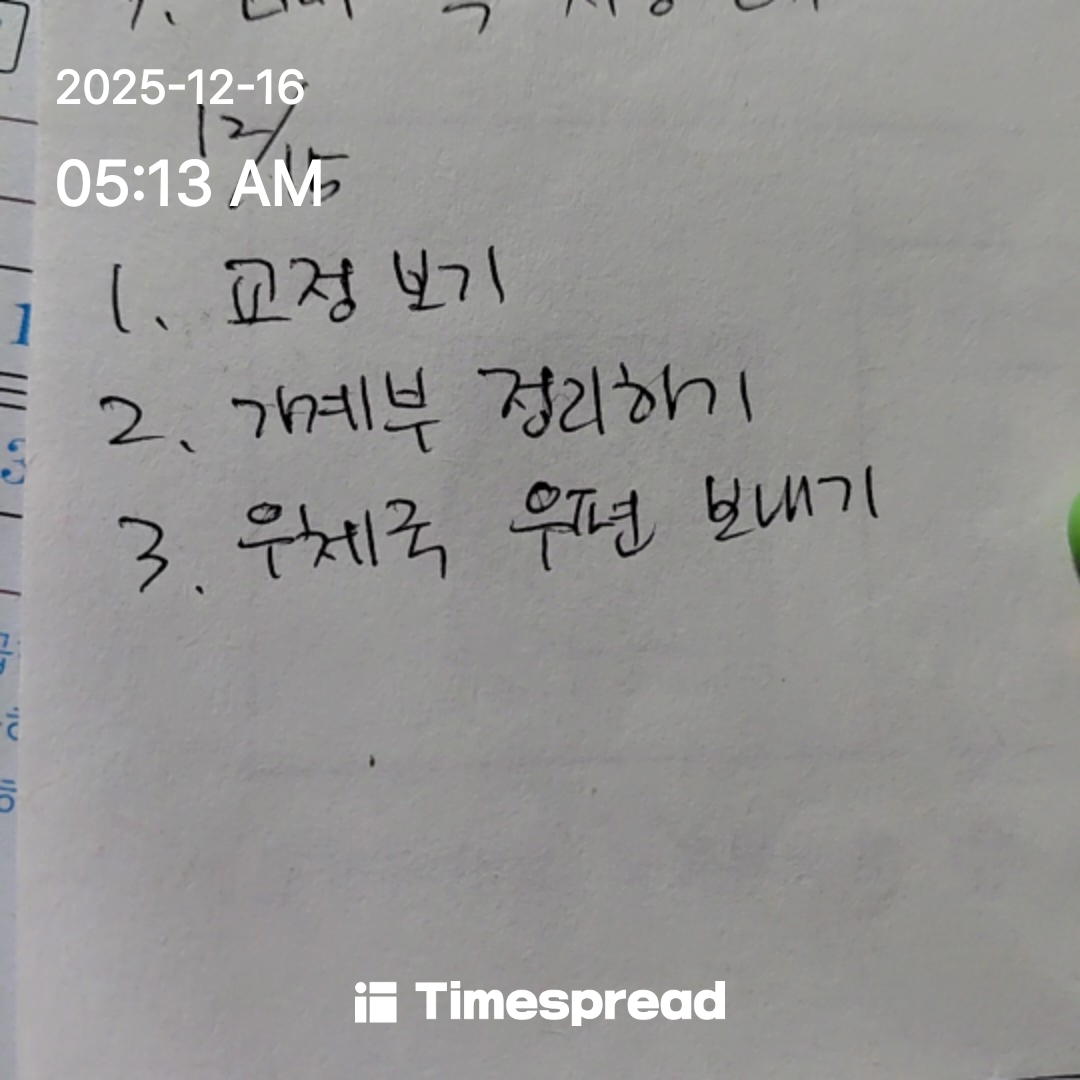 2025-12-16
12/15
05:13 AM
1. 교정 보기
2. 가계부 정리하기
3. 우체국 우편 보내기
Timespread